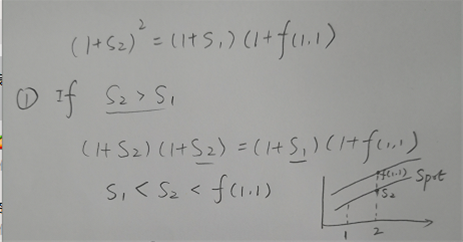 (1+S₂)² = (1+S₁)(1+f(1,1)
① If S₂ > S₁
(1+S₂)(1+S₂) = (1+S₁)(1+f(1,1)
S₁ < S₂ < f(1,1)
f(1,1)
Spot
S₂
1 2